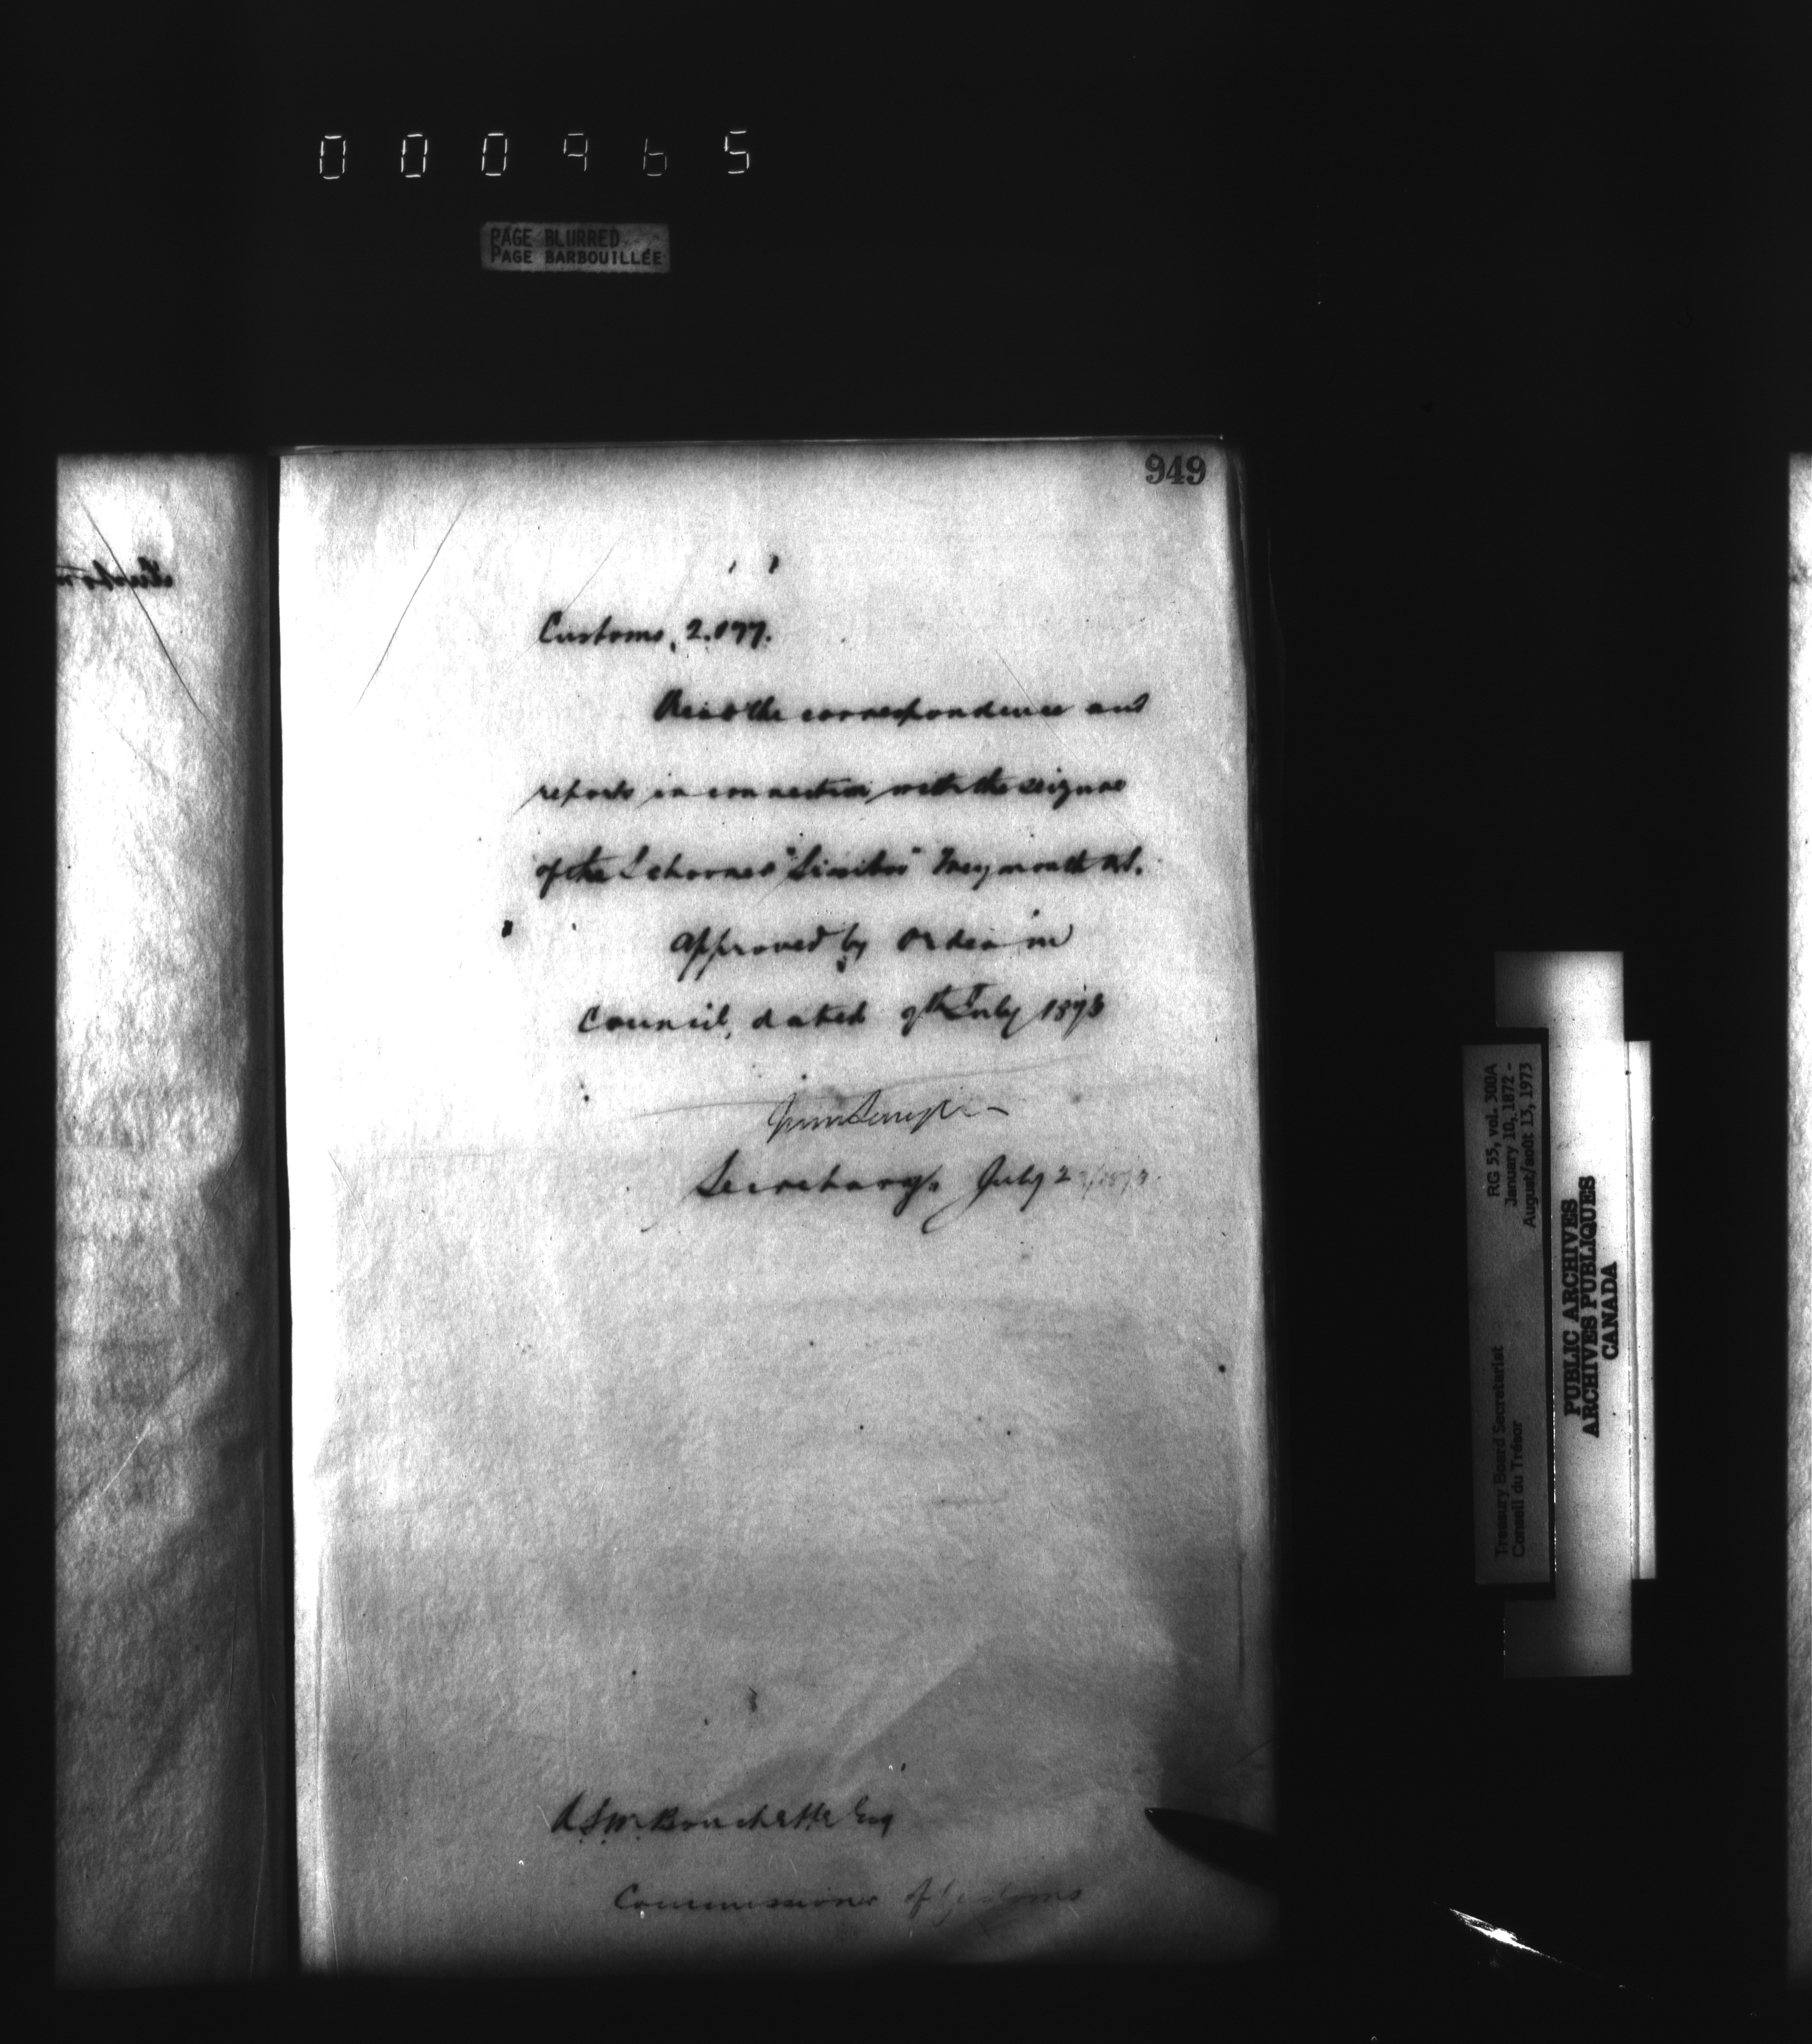 000965
PAGE BLURRED
PAGE BARBOUILLÉE
949
Customs, 2.077.
Read the correspondence and
reports in connection with the seizure
of the Schooner Weymouth N.S.
Approved by Order in
Council, dated 9th July 1873
Secretary. July 2
R.S.M. Bouchette Esq
Commissioner of Customs
Treasury Board Secretariat
Conseil du Trésor
RG 55, vol. 300A
January 10, 1872 -
August/août 13, 1973
PUBLIC ARCHIVES
ARCHIVES PUBLIQUES
CANADA